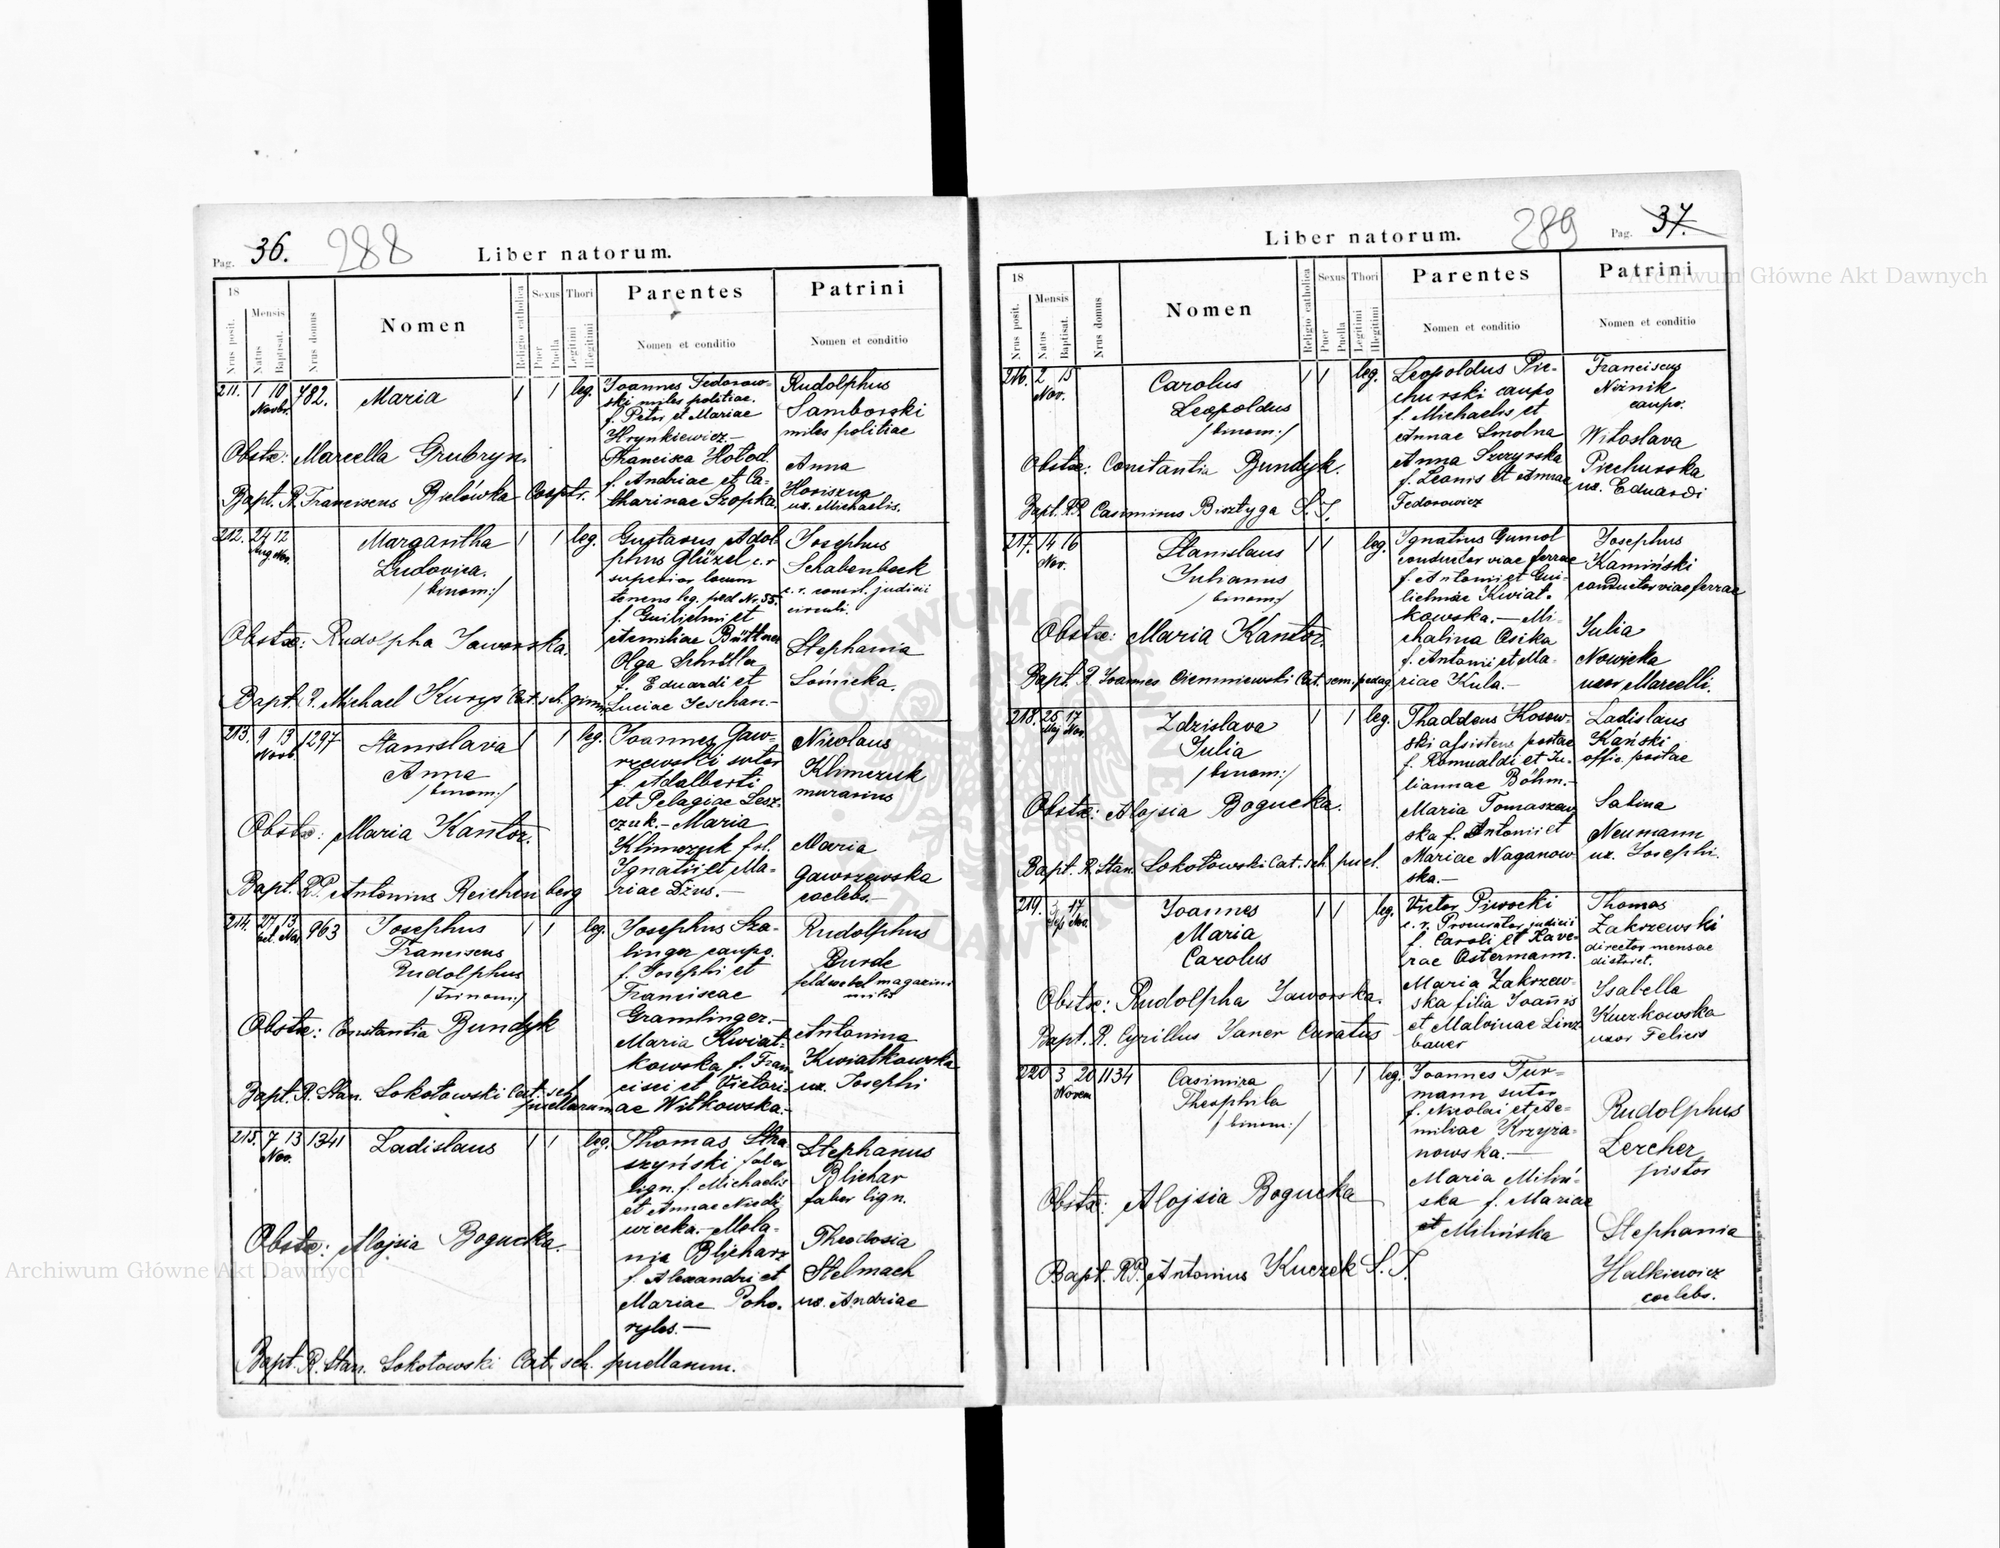 Pag. 36. 288
Liber natorum.
18
Nrus posit.
Mensis
Natus
Baptisat.
Nrus domus
Nomen
Religio catholica
Sexus
Puer
Puella
Thori
Legitimi
Illegitimi
Parentes
Nomen et conditio
Patrini
Nomen et conditio
211. 1 10 782. Maria 1 1 leg.
Novbr.
Joannes Fedorow-
ski miles politiae.
f. Petri et Mariae
Hrynkiewicz.—
Francisca Hołod.
f. Andriae et Ca-
tharinae Szopka.
Rudolphus
Samborski
miles politiae
Anna
Horiszna
ux. Michaelis.
Obstx: Marcella Grubryn.
Bapt. R. Franciscus Bulówka Cooptr.
212. 24 12 Margaritha 1 1 leg.
Aug. Nov.
Ludovica.
/binom:/
Gustavus Adol-
phus Glüzel c. r.
superior locum
tenens leg. ped Nr. 55.
f. Guilielmi et
Aemiliae Büttner
Olga Schüller
f. Eduardi et
Luciae Jeschan.—
Josephus
Schabenbeck
c. r. consil. judicii
circuli.
Stephania
Łośnicka.
Obstx: Rudolpha Jaworska.
Bapt. R. Michael Kurys Cat. sch. gimn.
213. 9 13 1297 Stanislava 1 1 leg.
Novb.
Anna
/binom:/
Joannes Gaw-
rzewski sutor
f. Adalberti
et Pelagiae Lesz-
czuk.— Maria
Klimczuk fil.
Ignatii et Ma-
riae Dżus.—
Nicolaus
Klimczuk
murarius
Maria
Gawrzewska
caelebs.—
Obstx: Maria Kantor.
Bapt. R.P. Antonius Reichenberg
214. 27 13 963 Josephus 1 1 leg.
Oct. Nov.
Franciscus
Rudolphus
/Trinom:/
Josephus Sza-
linger caupo.
f. Josephi et
Franciscae
Gramlinger.—
Maria Kwiat-
kowska f. Fran-
cisci et Victori-
ae Witkowska.—
Rudolphus
Burde
feldwebel magazini
milit
Antonina
Kwiatkowska
ux. Josephi
Obstx: Constantia Bundyk
Bapt. R. Stan. Sokołowski Cat. sch.
puellarum
215. 7 13 1341 Ladislaus 1 1 leg.
Nov.
Thomas Stra-
szyński faber
lign. f. Michaelis
et Annae Niedź
wiecka.— Mela-
nia Blicharz
f. Alexandri et
Mariae Poho-
ryles.—
Stephanus
Blichar
faber lign.
Theodosia
Stelmach
ux. Andriae
Obstx: Alojsia Bogucka.
Bapt. R. Stan. Sokołowski Cat. sch. puellarum.
289 Pag. 37.
Liber natorum.
18
Nrus posit.
Mensis
Natus
Baptisat.
Nrus domus
Nomen
Religio catholica
Sexus
Puer
Puella
Thori
Legitimi
Illegitimi
Parentes
Nomen et conditio
Patrini
Nomen et conditio
216. 2 15 Carolus 1 1 leg.
Nov.
Leopoldus
/binom:/
Leopoldus Pie-
churski caupo
f. Michaelis et
Annae Smolna
Anna Szczyrska
f. Leonis et Annae
Fedorowicz
Franciscus
Noźnik
caupo.
Witoslava
Piechurska
ux. Eduardi
Obstx: Constantia Bundyk.
Bapt. R.P. Casimirus Bisztyga S.J.
217. 14 16 Stanislaus 1 1 leg.
Nov.
Julianus
/binom:/
Ignatius Gumol
conductor viae ferrae
f. Antonii et Gui-
lielmae Kwiat-
kowska.— Mi-
chalina Osika
f. Antonii et Ma-
riae Kula.—
Josephus
Kamiński
conductor viae ferrae
Julia
Nowicka
uxor Marcelli.
Obstx: Maria Kantor.
Bapt. R. Joannes Ciemniewski Cat. sem. pedag
218. 25 17 Zdzislava 1 1 leg.
Maj Nov.
Julia
/binom:/
Thaddeus Kosow-
ski assistens postae
f. Romualdi et Ju-
liannae Böhm.—
Maria Tomaszew-
ska f. Antonii et
Mariae Naganow-
ska.—
Ladislaus
Kański
offic. postae
Sabina
Neumann
ux. Josephi.
Obstx: Alojsia Bogucka.
Bapt. R. Stan. Sokołowski Cat. sch. puel.
219. 3 17 Joannes 1 1 leg.
Sep. Nov.
Maria
Carolus
Victor Piwocki
c. r. Procurator judicii
f. Caroli et Xave-
rae Ostermann.
Maria Zakrzew-
ska filia Joañis
et Malvinae Linz-
bauer
Thomas
Zakrzewski
director mensae
district.
Isabella
Kuczkowska
uxor Felicis
Obstx: Rudolpha Jaworska.
Bapt. R. Cyrillus Janer Curatus
220 3 20 1134 Casimira 1 1 leg.
Novem
Theophila
/binom:/
Joannes Fur-
mann sutor
f. Nicolai et Ae-
miliae Krzyża-
nowska.—
Maria Miliń-
ska f. Mariae
et Milińska
Rudolphus
Lercher
pistor
Stephania
Halkiewicz
caelebs.
Obstx: Alojsia Bogucka
Bapt. R.P. Antonius Kuczek S.J.
Archiwum Główne Akt Dawnych
Archiwum Główne Akt Dawnych
ARCHIWUM GŁÓWNE AKT DAWNYCH